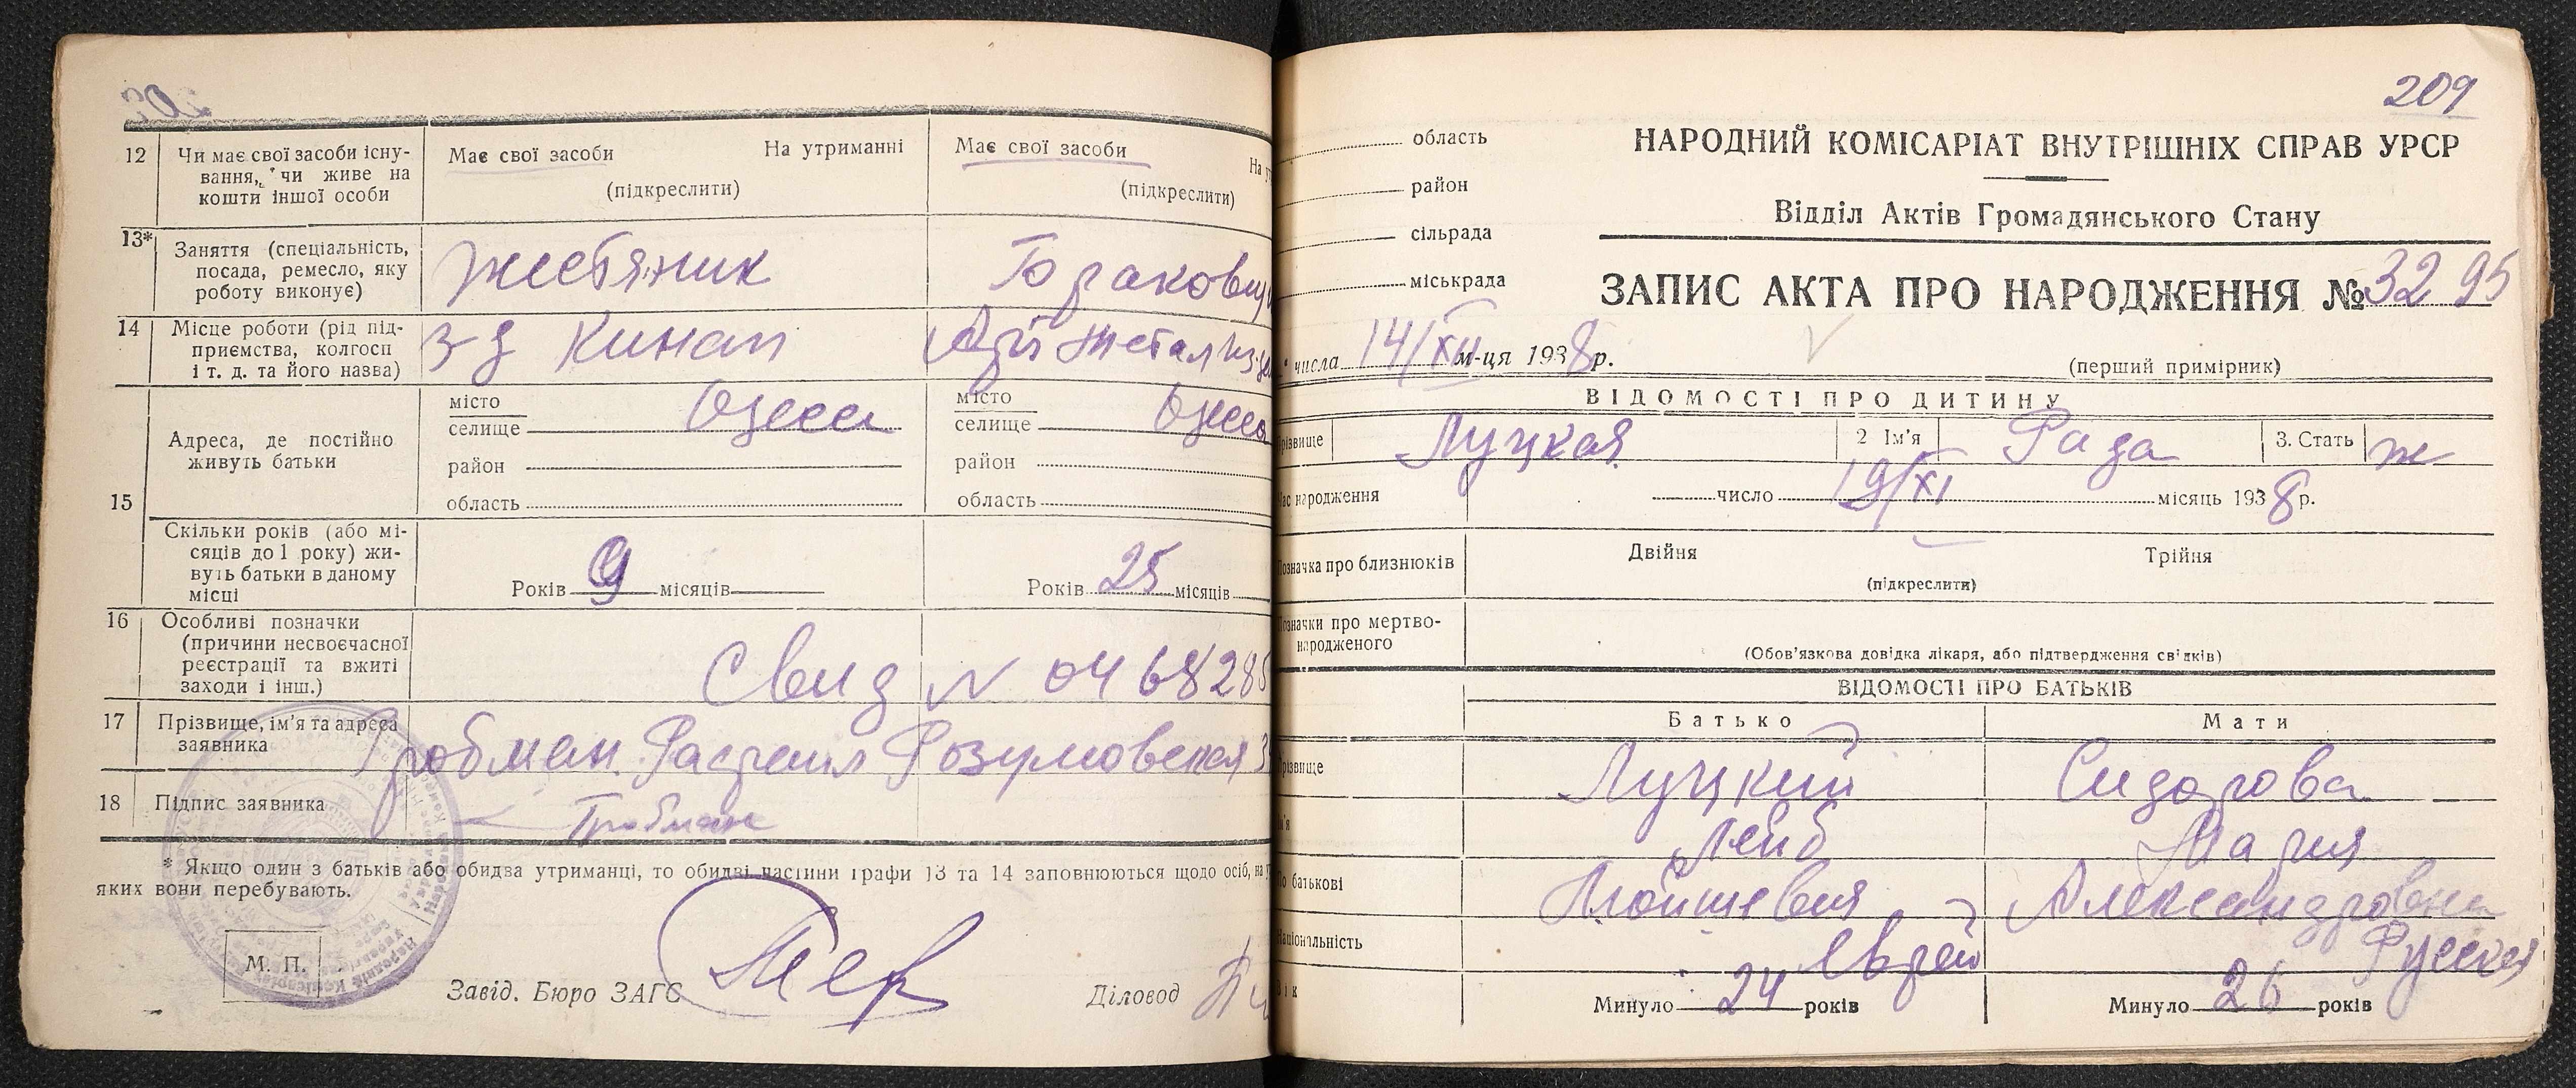 12
Чи має свої засоби існу-
вання, чи живе на
кошти іншої особи
Має свої засоби
На утриманні
(підкреслити)
Має свої засоби
На у
(підкреслити)
13*
Заняття (спеціальність,
посада, ремесло, яку
роботу виконує)
жестяник
14
Місце роботи (рід під-
приємства, колгосп
і т. д. та його назва)
з-д Кинап
15
Адреса, де постійно
живуть батьки
місто
селище
Одесса
район
область
місто
селище
Одесса
район
область
Скільки років (або мі-
сяців до 1 року) жи-
вуть батьки в даному
місці
Років 9 місяців
Років 25 місяців
16
Особливі позначки
(причини несвоєчасної
реєстрації та вжиті
заходи і інш.)
Свид N 046828
17
Прізвище, ім'я та адреса
заявника
Гробман Разумовская 3
18
Підпис заявника
Гробман
* Якщо один з батьків або обидва утриманці, то обидві частини графи 13 та 14 заповнюються щодо осіб, на у
яких вони перебувають.
М. П.
Завід. Бюро ЗАГС
Діловод
209
область
район
сільрада
міськрада
НАРОДНИЙ КОМІСАРІАТ ВНУТРІШНІХ СПРАВ УРСР
Відділ Актів Громадянського Стану
ЗАПИС АКТА ПРО НАРОДЖЕННЯ № 3295
числа 14/XII м-ця 1938 р.
(перший примірник)
ВІДОМОСТІ ПРО ДИТИНУ
різвище
Луцкая
2 Ім'я
Рада
3. Стать
ж
час народження
число 19/XI місяць 1938 р.
Позначка про близнюків
Двійня
Трійня
(підкреслити)
Позначки про мертво-
народженого
(Обов'язкова довідка лікаря, або підтвердження свідків)
ВІДОМОСТІ ПРО БАТЬКІВ
Батько
Мати
різвище
Луцкий
Сидорова
м'я
Лейб
Мария
По батькові
Мойшевич
Александровна
Національність
Еврей
Русская
Вік
Минуло 24 років
Минуло 26 років